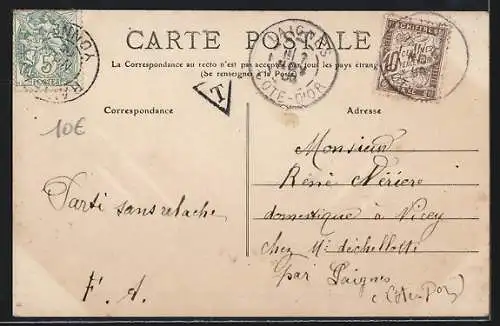 CARTE POSTALE
La Correspondance au recto n'est pas acceptée par tous les pays étrang
(Se renseigner à la Poste)
LAIGNES
COTE-D'OR
YONNE
5
POSTES
10
T
Correspondance
Adresse
10€
Parti sans relache
F. A.
Monsieur
René
domestique à Vicey
chez Mr
par Laignes
(Côte-Dor)